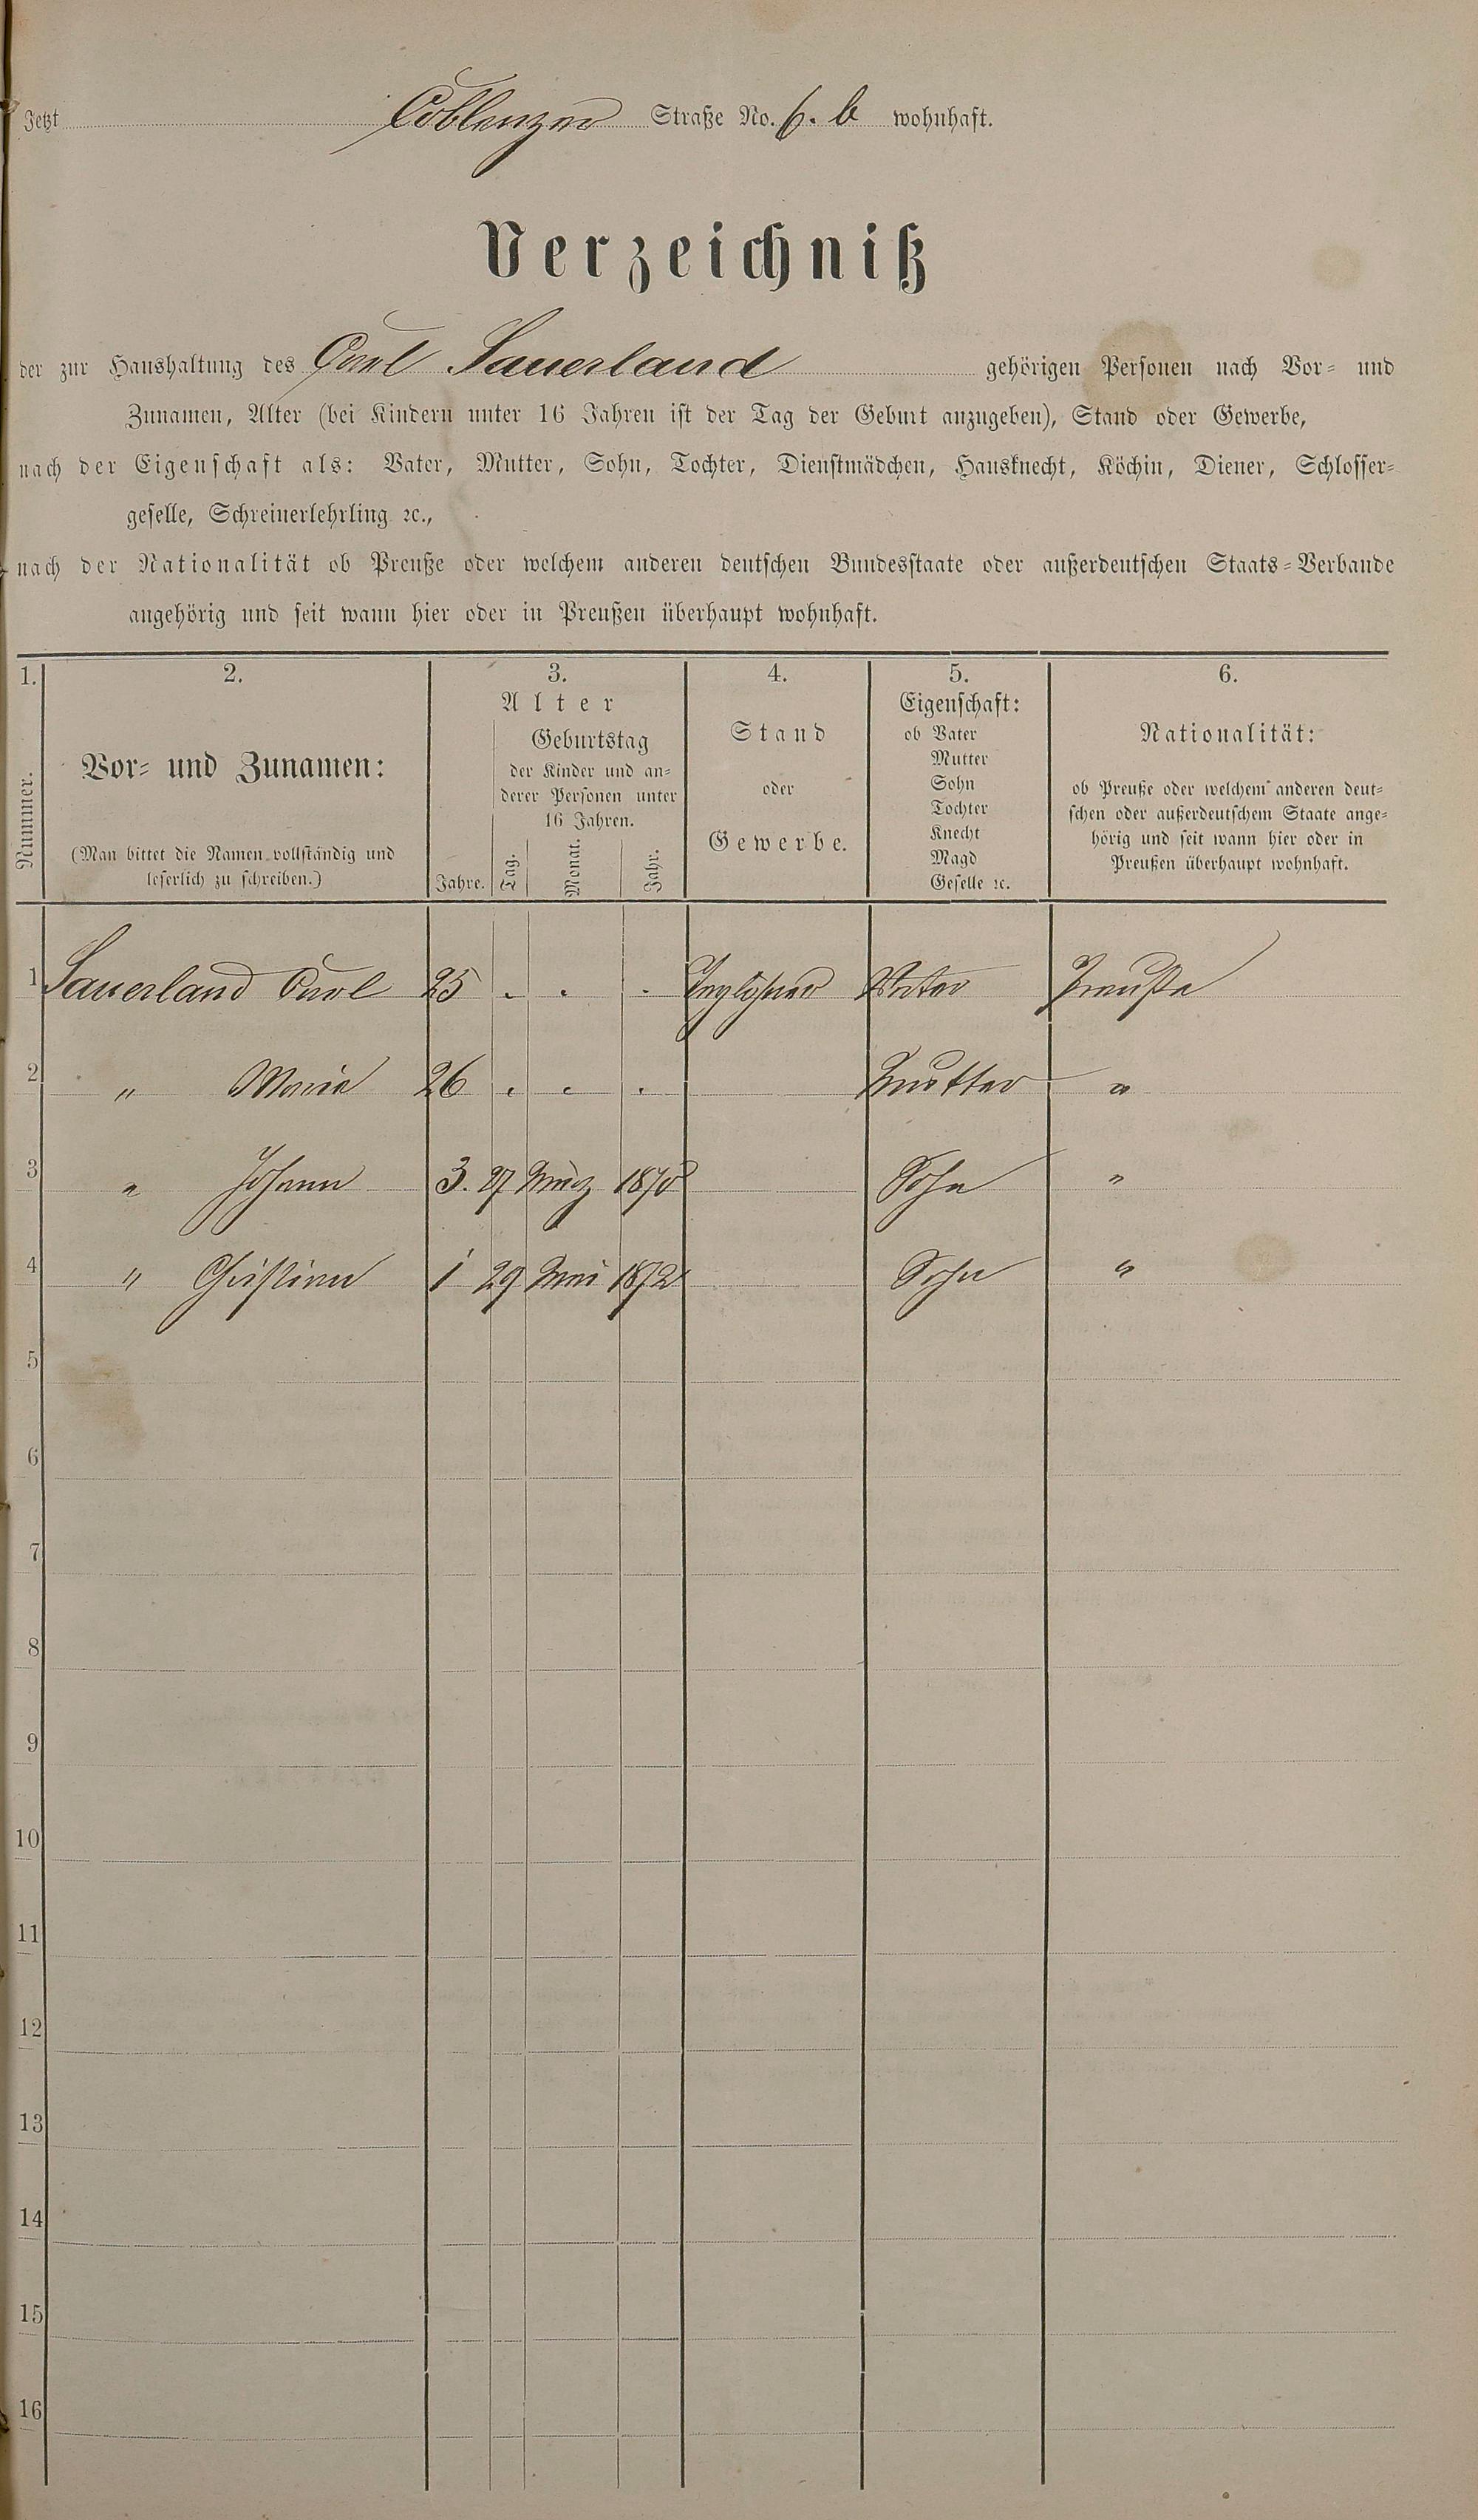 Jetzt Coblenzer Straße No. 6. b wohnhaft.
Verzeichniß
der zur Haushaltung des Carl Sauerland gehörigen Personen nach Vor- und
Zunamen, Alter (bei Kindern unter 16 Jahren ist der Tag der Geburt anzugeben), Stand oder Gewerbe,
nach der Eigenschaft als: Vater, Mutter, Sohn, Tochter, Dienstmädchen, Hausknecht, Köchin, Diener, Schlosser-
geselle, Schreinerlehrling ꝛc.,
nach der Nationalität ob Preuße oder welchem anderen deutschen Bundesstaate oder außerdeutschen Staats-Verbande
angehörig und seit wann hier oder in Preußen überhaupt wohnhaft.
1. 2. 3. 4. 5. 6.
Nummer.
Vor- und Zunamen:
(Man bittet die Namen vollständig und
leserlich zu schreiben.)
Alter
Geburtstag
der Kinder und an-
derer Personen unter
16 Jahren.
Jahre. Tag. Monat. Jahr.
Stand
oder
Gewerbe.
Eigenschaft:
ob Vater
Mutter
Sohn
Tochter
Knecht
Magd
Geselle ꝛc.
Nationalität:
ob Preuße oder welchem anderen deut-
schen oder außerdeutschem Staate ange-
hörig und seit wann hier oder in
Preußen überhaupt wohnhaft.
1 Sauerland Carl 25 . . . Taglöhner Vater Preuße
2 " Maria 26 . . . Mutter "
3 " Johann 3. 27 März 1870 Sohn "
4 " Christian 1 29 Mai 1872 Sohn "
5
6
7
8
9
10
11
12
13
14
15
16